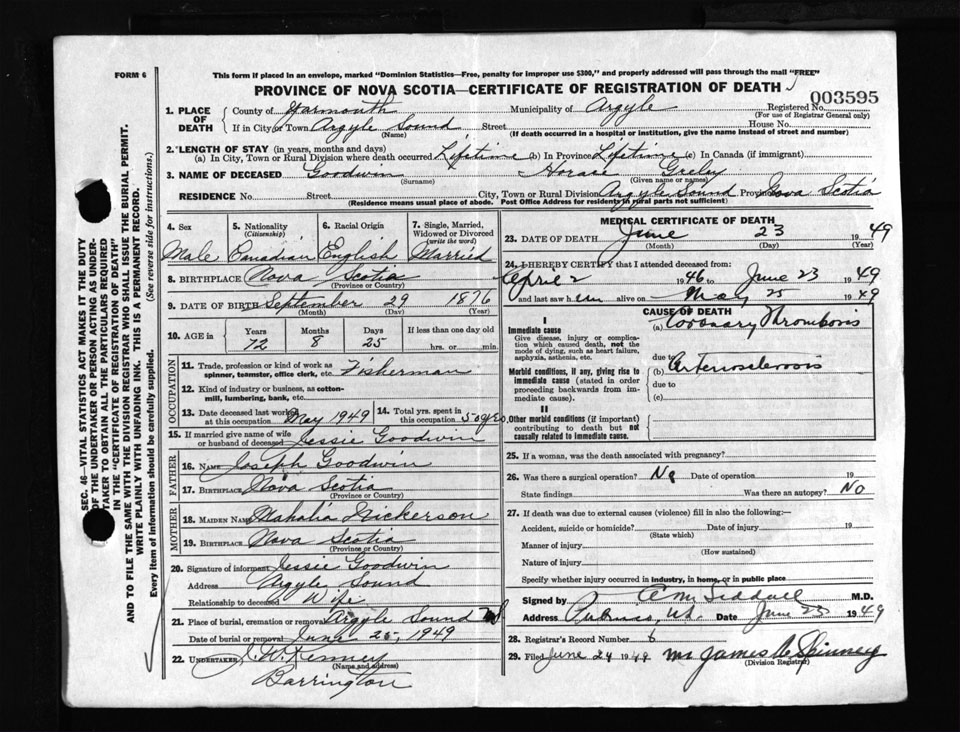 FORM 6
This form if placed in an envelope, marked "Dominion Statistics—Free, penalty for improper use $300," and properly addressed will pass through the mail "FREE"
PROVINCE OF NOVA SCOTIA—CERTIFICATE OF REGISTRATION OF DEATH
003595
1. PLACE OF DEATH { County of Yarmouth Municipality of Argyle Registered No.
(For use of Registrar General only)
If in City or Town Argyle Sound Street House No.
(Name) (If death occurred in a hospital or institution, give the name instead of street and number)
2. LENGTH OF STAY (in years, months and days)
(a) In City, Town or Rural Division where death occurred Lifetime (b) In Province Lifetime (c) In Canada (if immigrant)
3. NAME OF DECEASED Goodwin Horace Greley
(Surname) (Given name or names)
RESIDENCE No. Street City, Town or Rural Division Argyle Sound Province Nova Scotia
(Residence means usual place of abode. Post Office Address for residents in rural parts not sufficient)
4. Sex 5. Nationality (Citizenship) 6. Racial Origin 7. Single, Married, Widowed or Divorced (write the word)
Male Canadian English Married
8. BIRTHPLACE Nova Scotia
(Province or Country)
9. DATE OF BIRTH September 29 1876
(Month) (Day) (Year)
10. AGE in { Years Months Days If less than one day old
72 8 25 hrs. or min.
OCCUPATION
11. Trade, profession or kind of work as spinner, teamster, office clerk, etc. Fisherman
12. Kind of industry or business, as cotton-mill, lumbering, bank, etc.
13. Date deceased last worked at this occupation May 1949 14. Total yrs. spent in this occupation 50 yrs.
15. If married give name of wife or husband of deceased Jessie Goodwin
FATHER
16. NAME Joseph Goodwin
17. BIRTHPLACE Nova Scotia
(Province or Country)
MOTHER
18. MAIDEN NAME Mahalia Nickerson
19. BIRTHPLACE Nova Scotia
(Province or Country)
20. Signature of informant Jessie Goodwin
Address Argyle Sound
Relationship to deceased Wife
21. Place of burial, cremation or removal Argyle Sound NS
Date of burial or removal June 25, 1949
22. UNDERTAKER J. W. Kenney
(Name and address)
Barrington
MEDICAL CERTIFICATE OF DEATH
23. DATE OF DEATH June 23 1949
(Month) (Day) (Year)
24. I HEREBY CERTIFY that I attended deceased from:
April 2 1946 to June 23 1949
and last saw him alive on May 25 1949
CAUSE OF DEATH
I
Immediate cause (a) Coronary Thrombosis
Give disease, injury or complication which caused death, not the mode of dying, such as heart failure, asphyxia, asthenia, etc.
due to
Morbid conditions, if any, giving rise to immediate cause (stated in order proceeding backwards from immediate cause).
(b) Arteriosclerosis
due to
(c)
II
Other morbid conditions (if important) contributing to death but not causally related to immediate cause.
25. If a woman, was the death associated with pregnancy?
26. Was there a surgical operation? No Date of operation 19
State findings Was there an autopsy? No
27. If death was due to external causes (violence) fill in also the following:—
Accident, suicide or homicide? Date of injury 19
(State which)
Manner of injury
(How sustained)
Nature of injury
Specify whether injury occurred in industry, in home, or in public place
Signed by M.D.
Address Pubnico, NS. Date June 25 1949
28. Registrar's Record Number 6
29. Filed June 24 1949 Mr James A Spinney
(Division Registrar)
SEC. 46—VITAL STATISTICS ACT MAKES IT THE DUTY
OF THE UNDERTAKER OR PERSON ACTING AS UNDERTAKER TO OBTAIN ALL THE PARTICULARS REQUIRED
IN THE "CERTIFICATE OF REGISTRATION OF DEATH"
AND TO FILE THE SAME WITH THE DIVISION REGISTRAR WHO SHALL ISSUE THE BURIAL PERMIT.
WRITE PLAINLY WITH UNFADING INK. THIS IS A PERMANENT RECORD.
Every item of information should be carefully supplied. (See reverse side for instructions.)